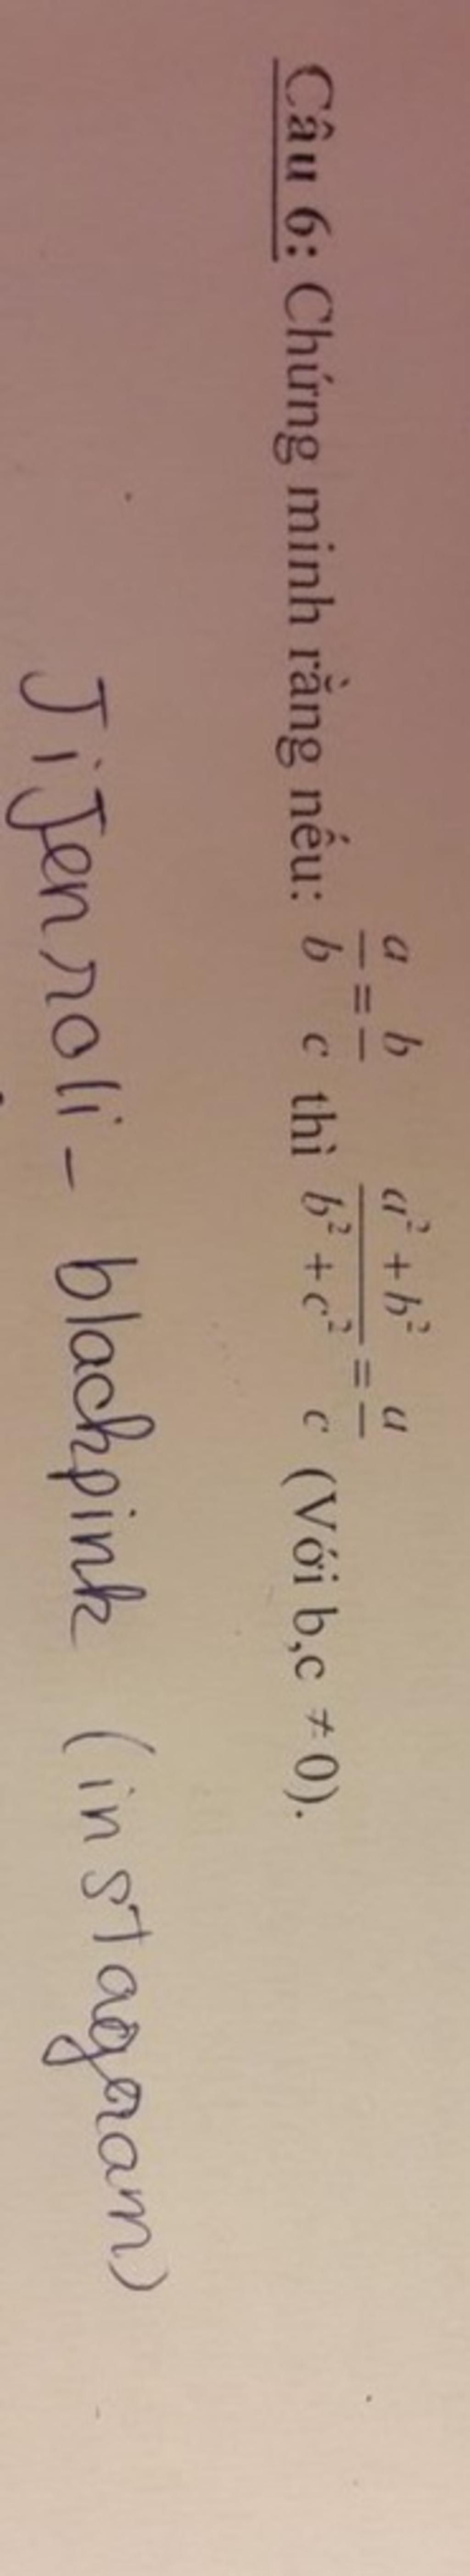 Câu 6: Chứng minh rằng nếu: a/b = b/c thì (a² + b²)/(b² + c²) = a/c (Với b,c ≠ 0).
JiJenroli - blackpink (instagram)